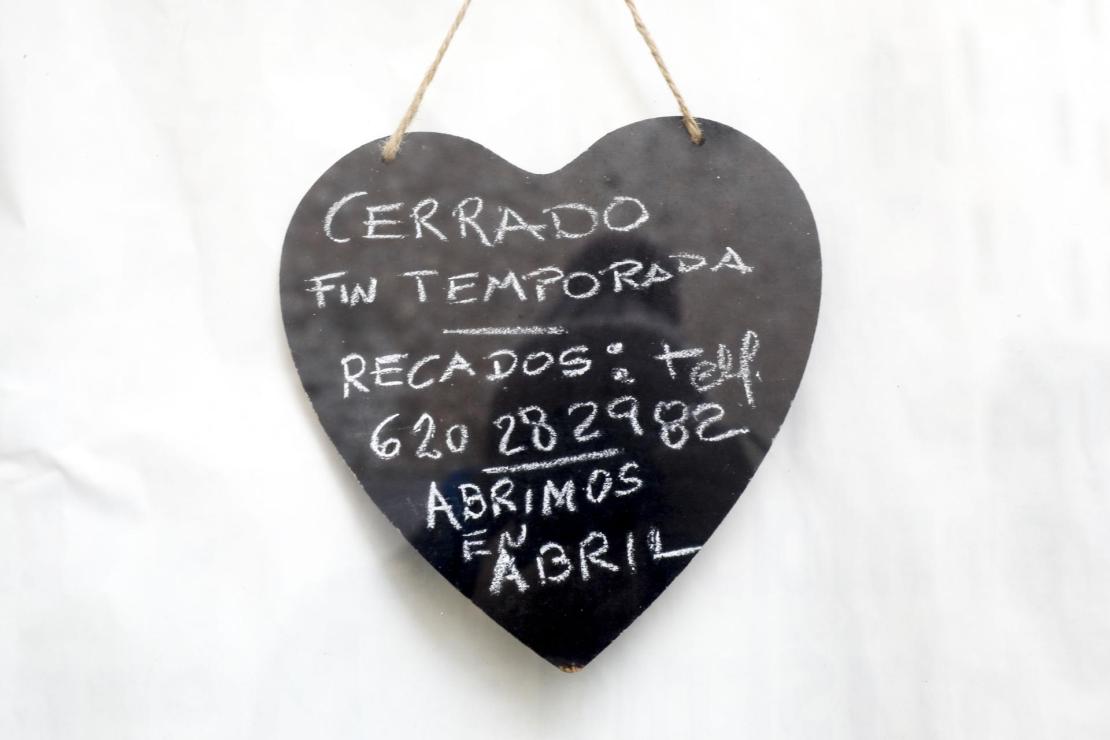 CERRADO
FIN TEMPORADA
RECADOS: telf.
620 28 29 82
ABRIMOS
EN
ABRIL